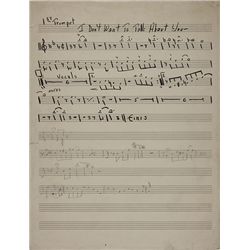 1st Trumpet
I Don't Want To Talk About You
Vocals
Fine